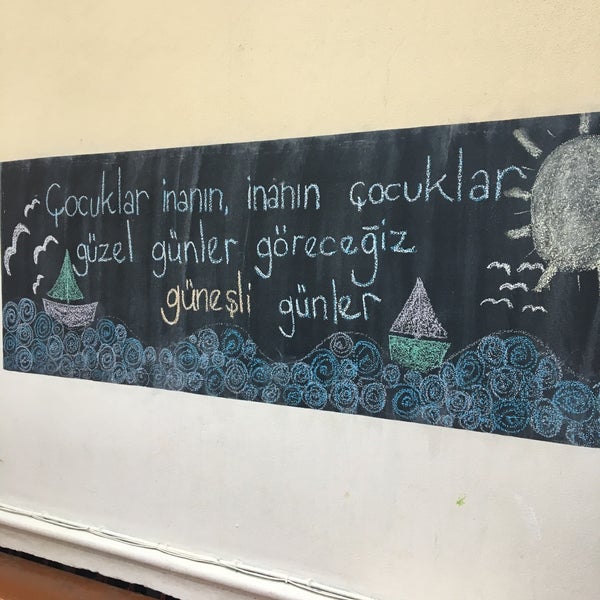 Çocuklar inanın, inanın çocuklar
güzel günler göreceğiz
güneşli günler